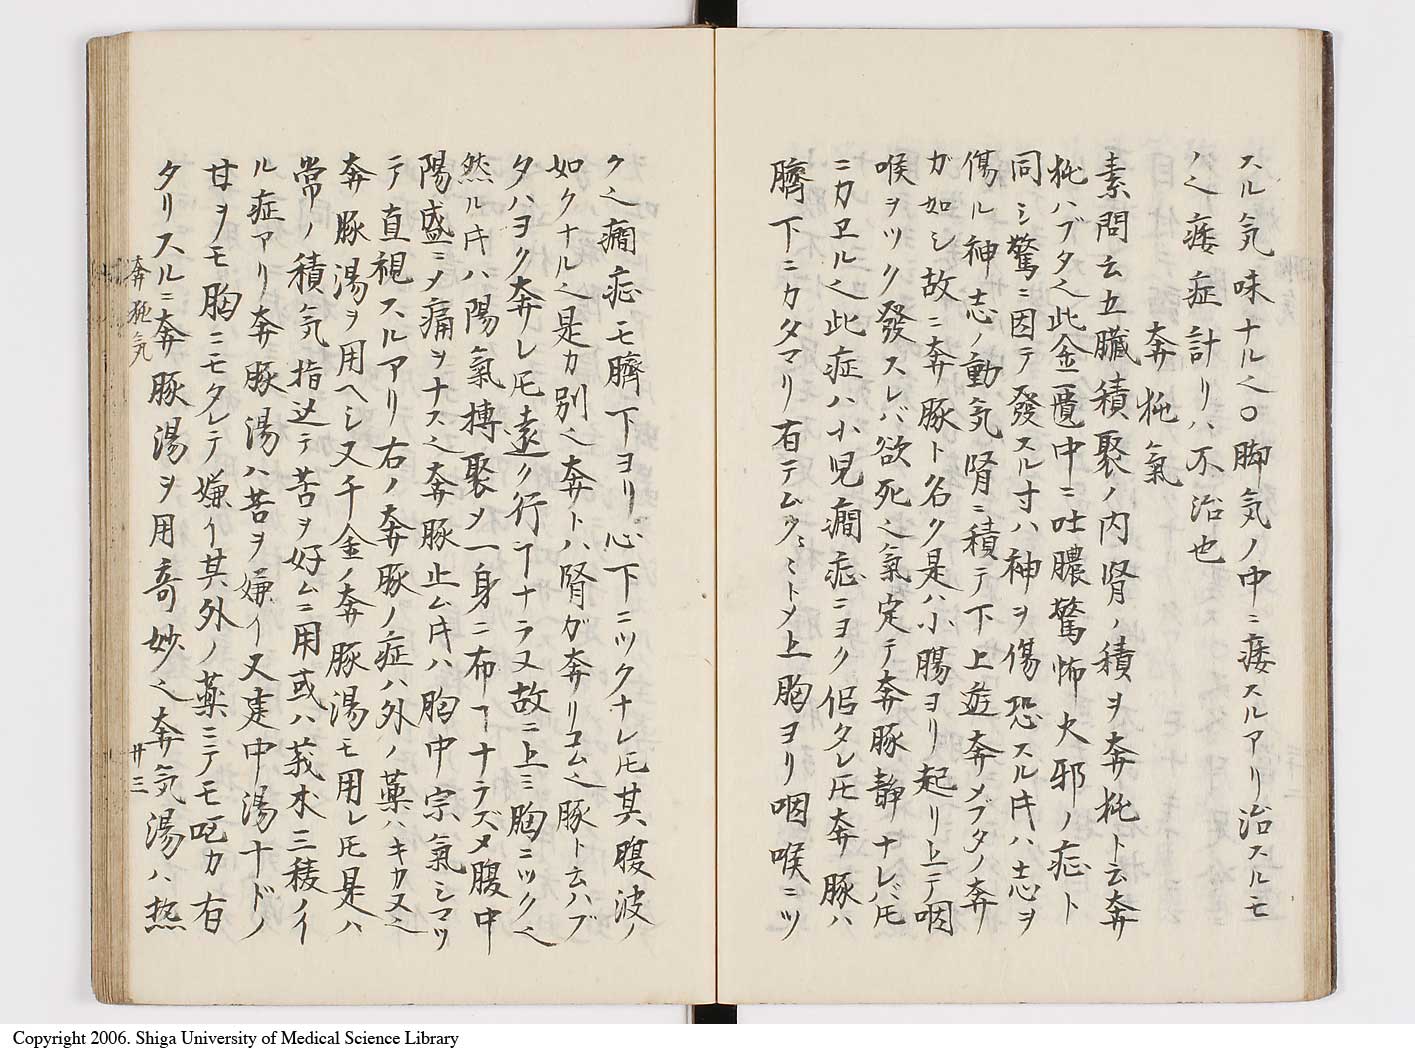 スル気味ナル之〇脚気ノ中ニ痿スルアリ治スルモ
ノ之痿症計リハ不治也
奔㹠氣
素問云五臓積聚ノ内腎ノ積ヲ奔㹠ト云奔
㹠ハブタ之此金匱中ニ吐膿驚怖火邪ノ症ト
同シ驚ニ因テ發スル寸ハ神ヲ傷恐スル𪜈ハ志ヲ
傷ル神志ノ動気腎ニ積テ下上遊奔メブタノ奔
ガ如シ故ニ奔豚ト名ク是ハ小腸ヨリ起リ上テ咽
喉ヲツク發スレバ欲死之氣定テ奔豚静ナレバ𪜈
ニカヱル之此症ハ小児癇症ニヨク侣タレ𪜈奔豚ハ
臍下ニカタマリ有テムクミトメ上胸ヨリ咽喉ニツ
ク之癇症モ臍下ヨリ心下ニツクナレ𪜈其腹波ノ
如クナル之是カ別之奔トハ腎ガ奔リヿム之豚ト云ハブ
タハヨク奔レ𪜈遠ク行ヿナラヌ故ニ上ミ胸ニツク之
然ル𪜈ハ陽氣搏聚メ一身ニ布ヿナラズメ腹中
陽盛ニメ痛ヲナス之奔豚止ム𪜈ハ胸中宗氣シマツ
テ直視スルアリ右ノ奔豚ノ症ハ外ノ薬ハキカヌ之
奔豚湯ヲ用ヘシ又千金ノ奔豚湯モ用レ𪜈是ハ
常ノ積気指込テ苦ヲ好ムニ用或ハ莪朮三稜ノイ
ル症アリ奔豚湯ハ苦ヲ嫌イ又建中湯ナドノ
甘ヲモ胸ニモタレテ嫌イ其外ノ薬ニテモ吃カ有
タリスルニ奔豚湯ヲ用奇妙之奔気湯ハ熱
奔㹠気
廿三
Copyright 2006. Shiga University of Medical Science Library